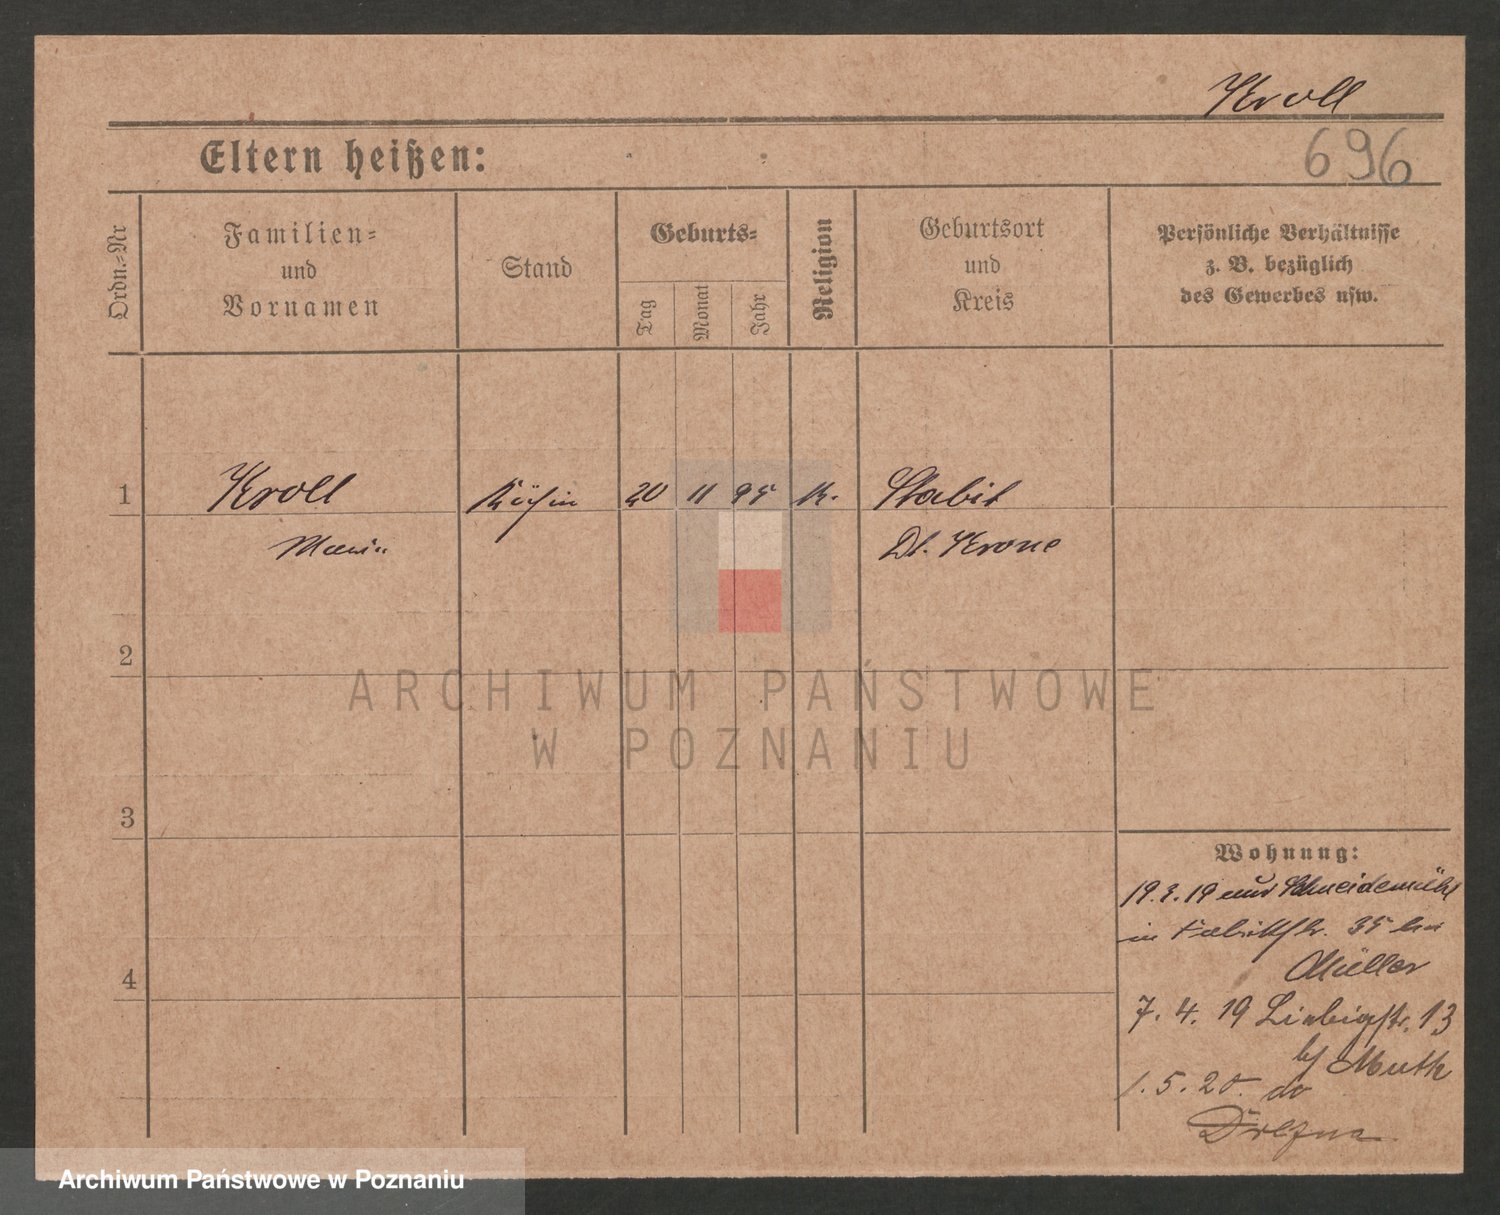 Kroll
696
Eltern heißen:
Ordn.-Nr
Familien-
und
Vornamen
Stand
Geburts-
Tag
Monat
Jahr
Religion
Geburtsort
und
Kreis
Persönliche Verhältnisse
z. B. bezüglich
des Gewerbes usw.
1 Kroll Köchin 20 11 95 K. Stabit
Marie Dt. Krone
2
ARCHIWUM PAŃSTWOWE
W POZNANIU
3
Wohnung:
19.3.19 aus Schneidemühl
in Fabrikstr. 35 bei
Müller
4
7. 4. 19 Liebigstr. 13
bei Muth
1. 5. 20. do
Archiwum Państwowe w Poznaniu